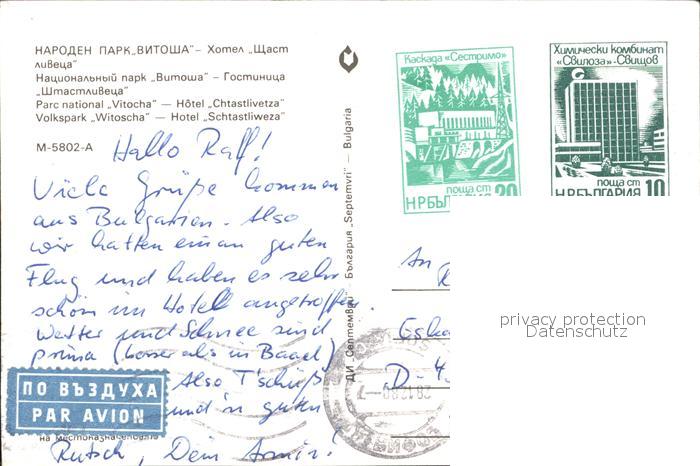 НАРОДЕН ПАРК „ВИТОША" – Хотел „Щаст
ливеца"
Национальный парк „Витоша" – Гостиница
„Штастливеца"
Parc national „Vitocha" — Hôtel „Chtastlivetza"
Volkspark „Witoscha" — Hotel „Schtastliweza"
М-5802-А
Hallo Ralf!
Viele Grüße kommen
aus Bulgarien. Also
wir hatten einen guten
Flug und haben es sehr
schön im Hotel angetroffen.
Wetter und Schnee sind
prima (besser als in Basel)
Also Tschüß
und'n guten
Rutsch, Dein Armin!
ПО ВЪЗДУХА
PAR AVION
ДИ „Септември" България „Septemvri" — Bulgaria
Каскада «Сестримо»
поща ст
НР БЪЛГАРИЯ 20
Химически комбинат
«Свилоза»-Свищов
поща ст
НР БЪЛГАРИЯ 10
An
D-4
privacy protection
Datenschutz